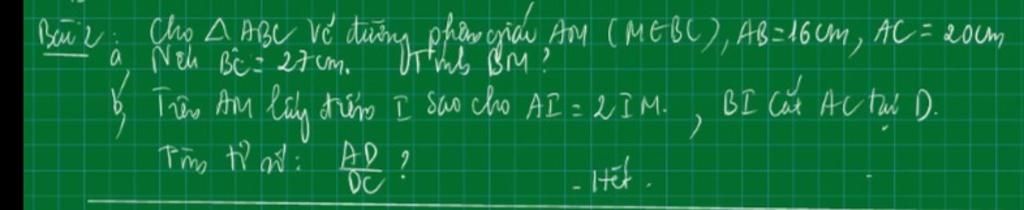 Bài 2: Cho △ABC vẽ đường phân giác AM (M∈BC), AB=16cm, AC=20cm
a, Nếu BC=27cm. Tính BM?
b, Trên AM lấy điểm I sao cho AI=2IM., BI cắt AC tại D.
Tìm tỉ số: AD/DC ?
- Hết.